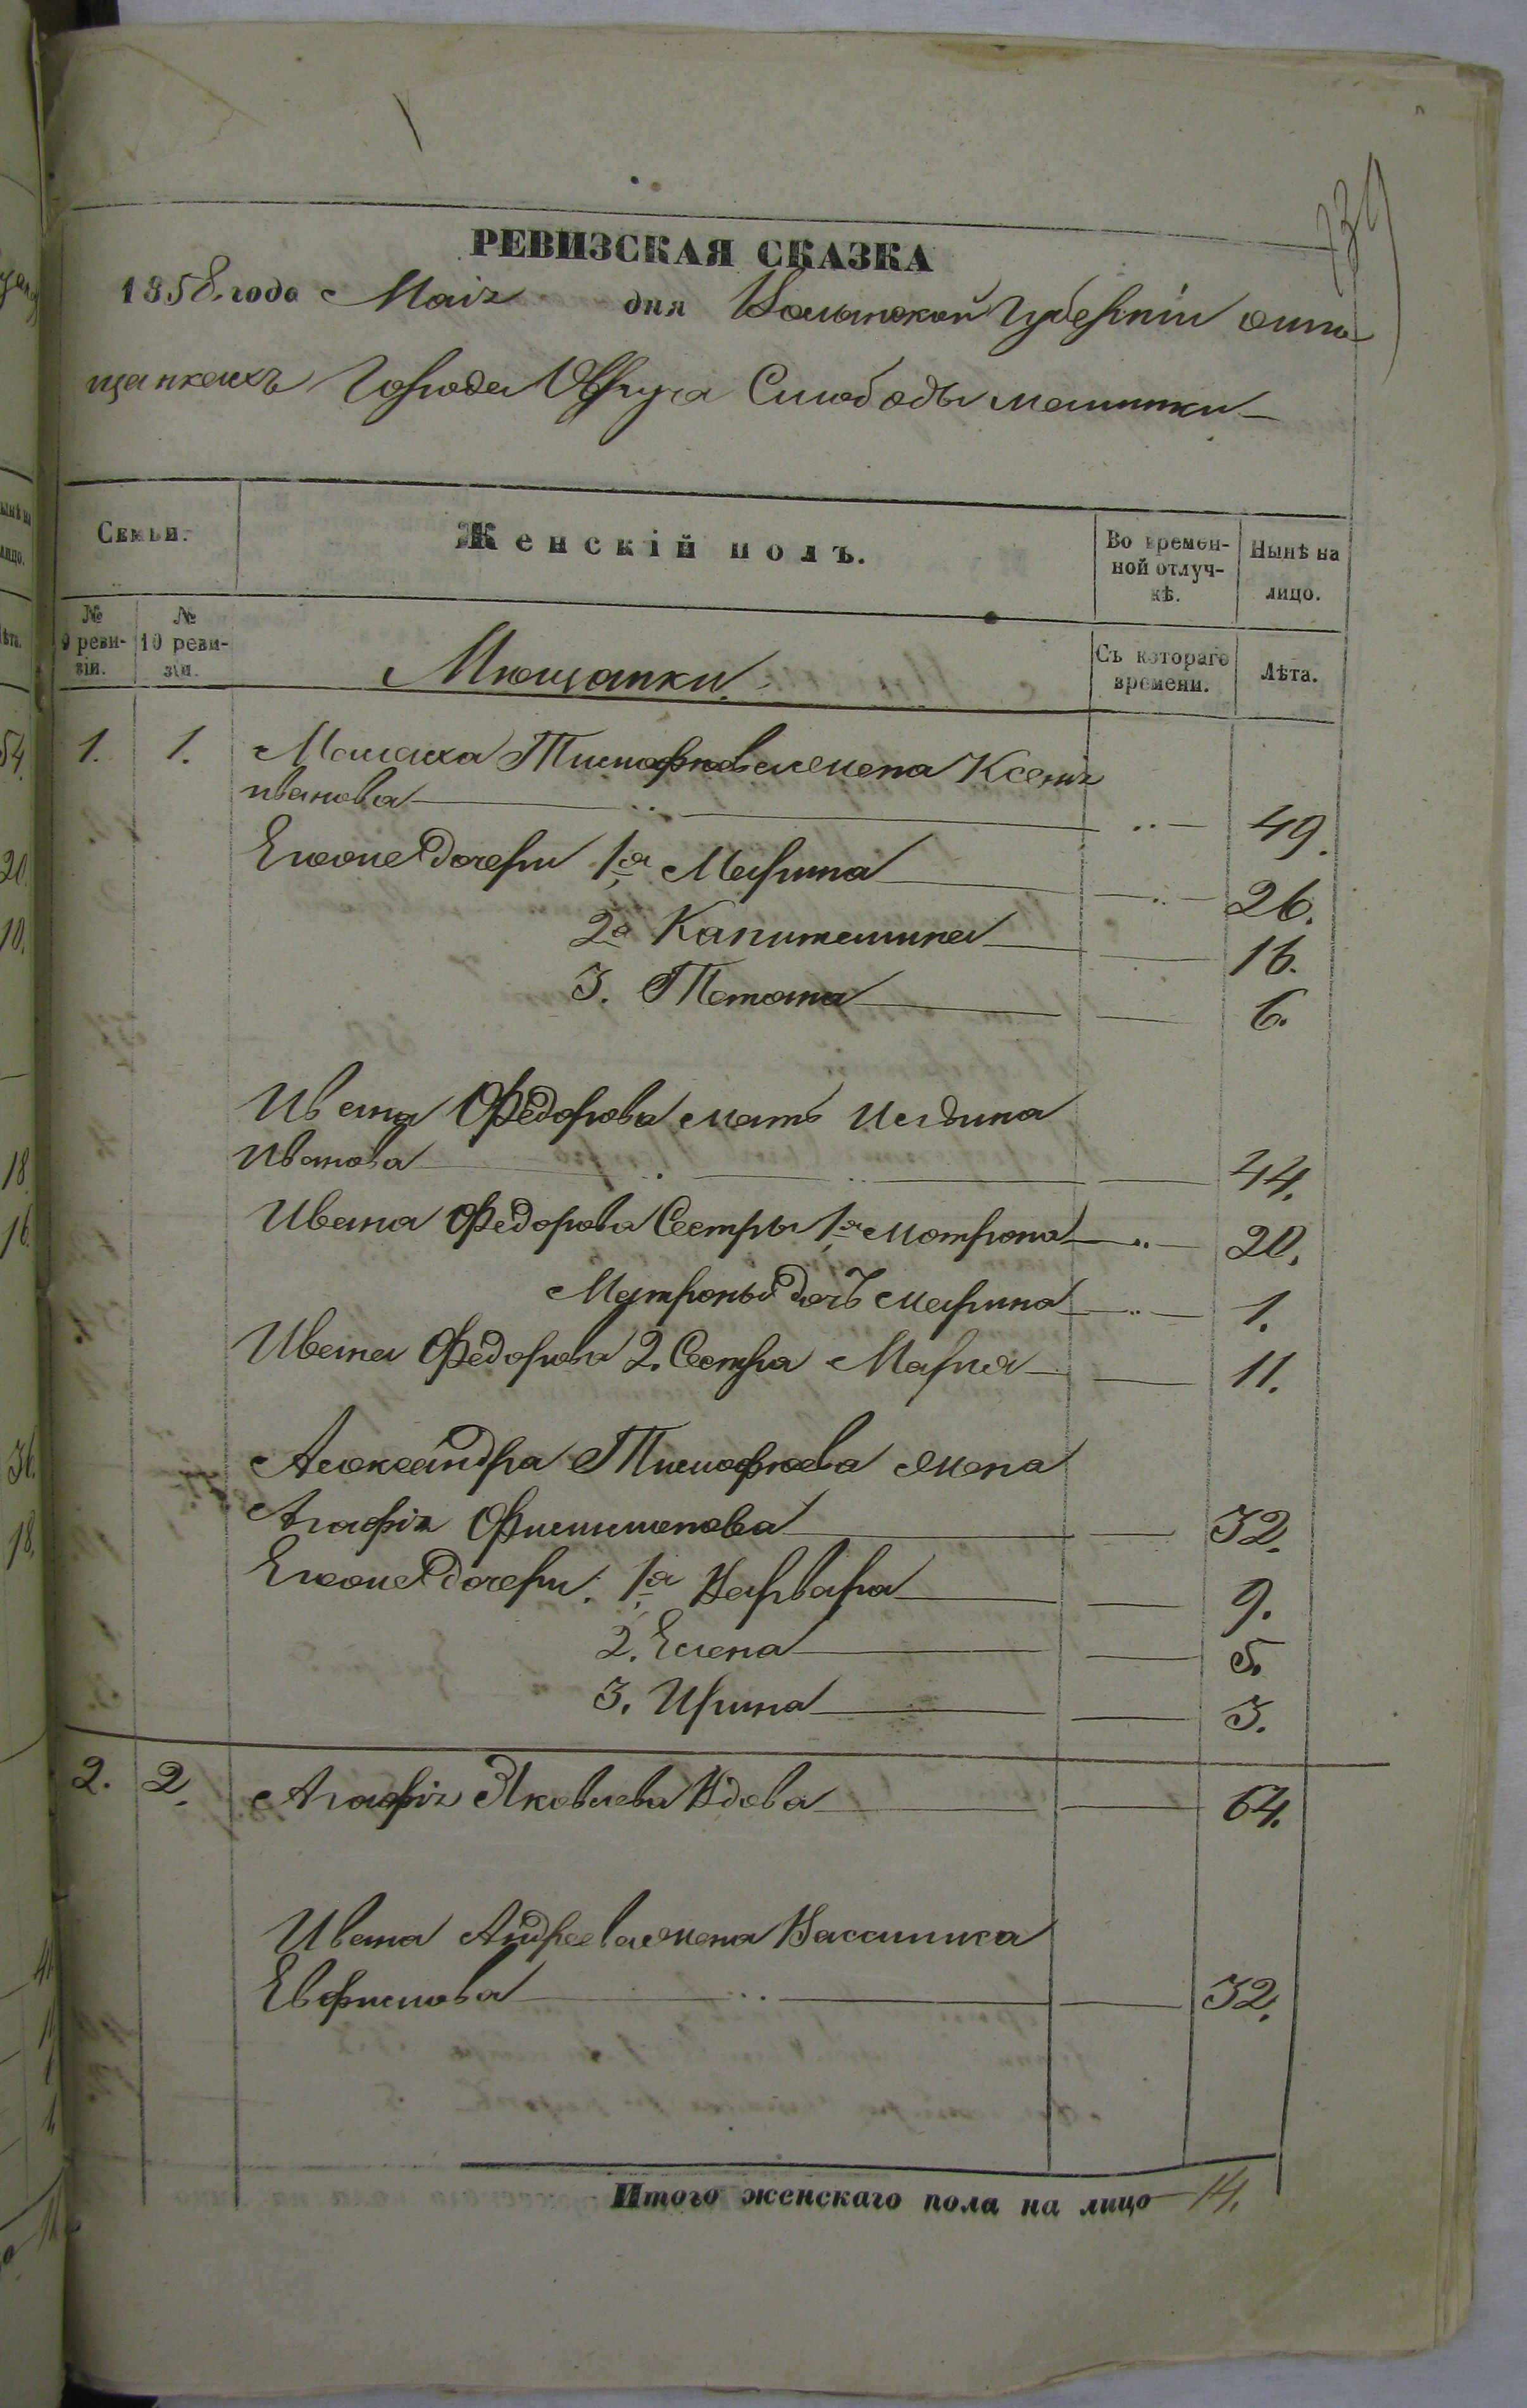 739
РЕВИЗСКАЯ СКАЗКА
1858 года Маія дня Волынской Губерніи о мѣ
щанкахъ Города Овруча Слободы
Семьи.
Женскій полъ.
Во времен-
ной отлуч-
кѣ.
Нынѣ на
лицо.
№
9 реви-
зіи.
№
10 реви-
зіи.
Мѣщанки.
Съ котораго
времени.
Лѣта.
1. 1. Малаха Тимофѣева жена Ксенія
иванова 49.
Его же дочери 1я Марина 26.
2я Капиталина 16.
3. Тетяна 6.
Ивана Федорова мать
Иванова 44.
Ивана Федорова Сестры 1я мотрона 20.
Мутроны дочь марина 1.
Ивана Федорова 2. Сестра Марія 11.
Александра Тимофѣева жена
Агафія Филимонова 32.
Его же дочери. 1я Варвара 9.
2. Елена 5.
3. Ирина 3.
2. 2. Агафія Яковлева Вдова 64.
Ивана Андреева жена Василиса
Евфимова 32.
Итого женскаго пола на лицо 14.